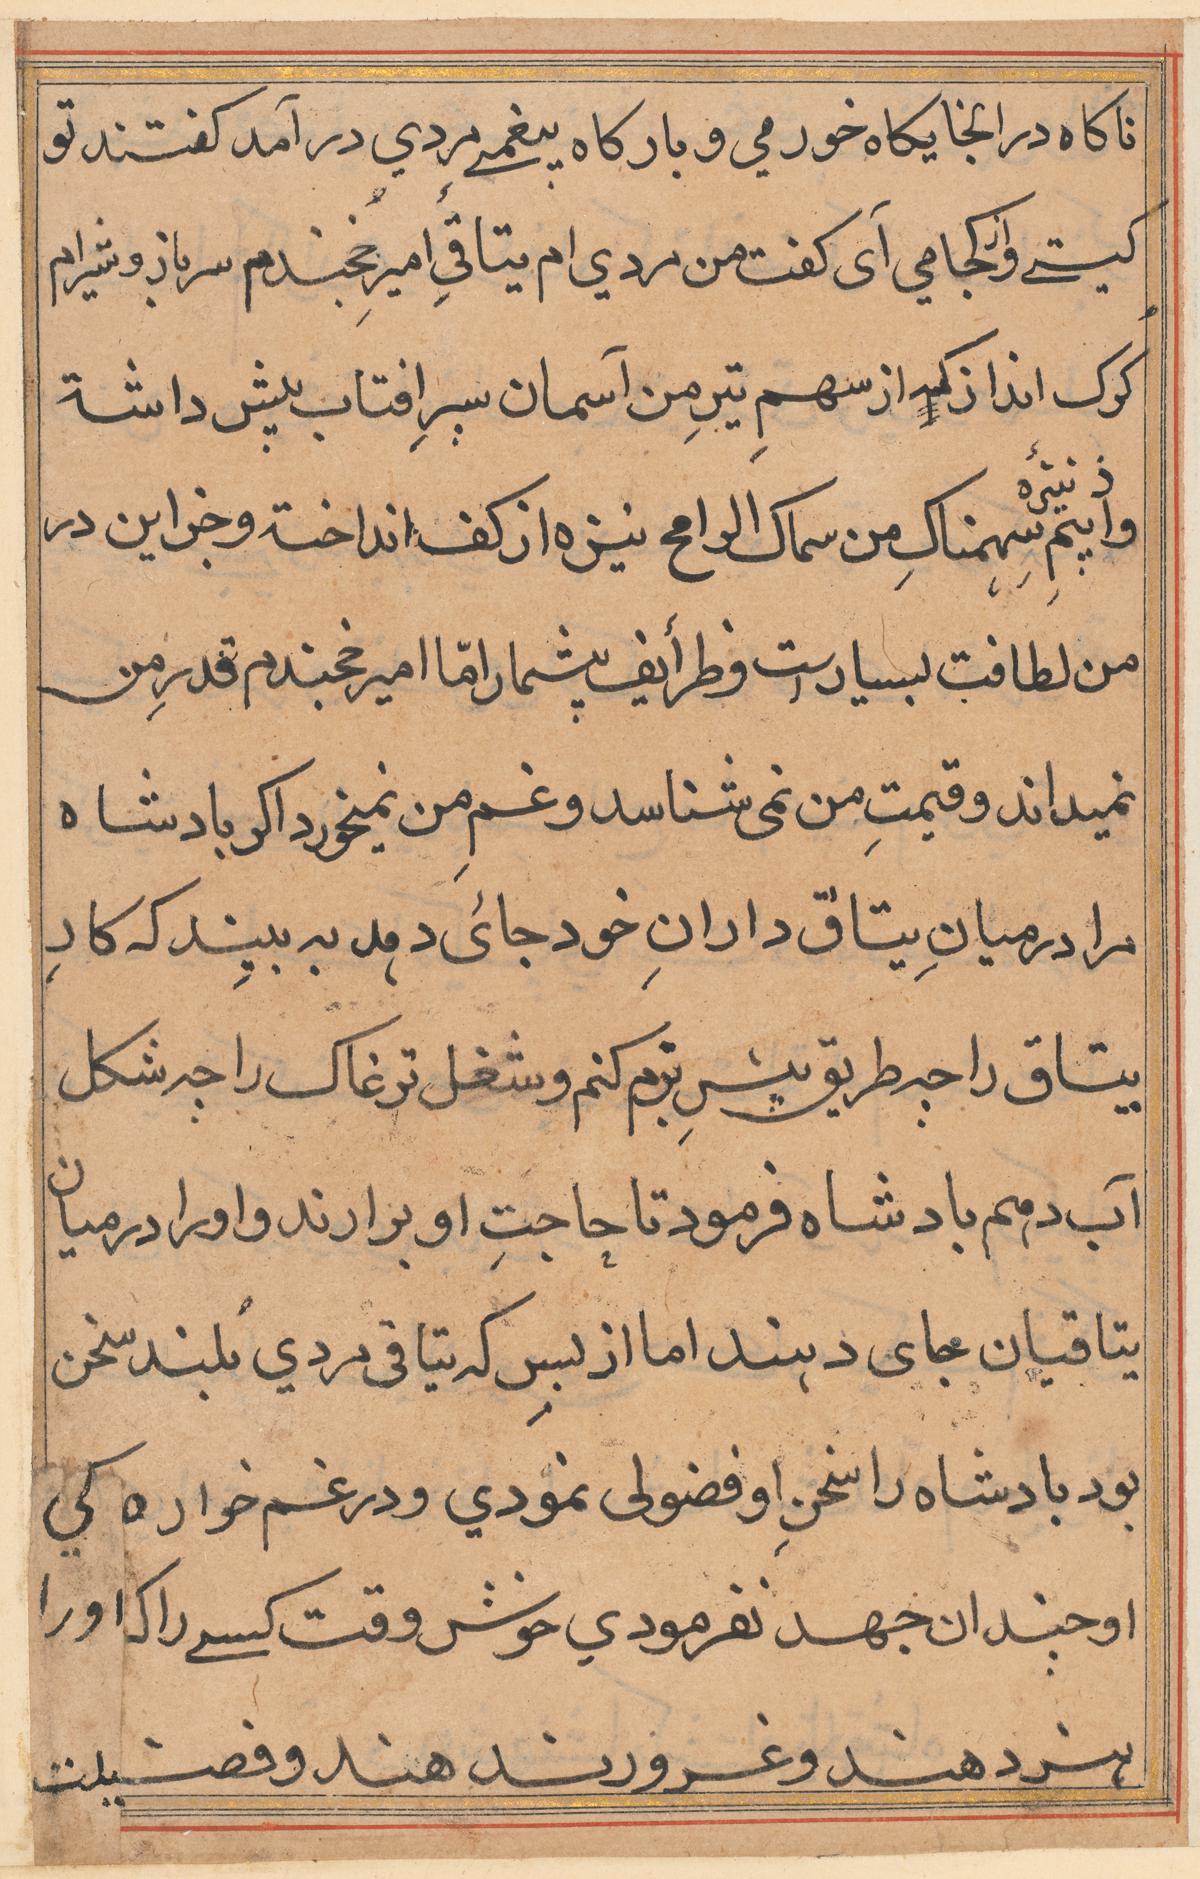 ناکاه در انجایکاه خورمي و بارکاه بیغمے مردي درآمد کفتند تو
کیستے و از کجا مي آی کفت من مردي ام یتاقيِ امیرِ خجندم سرباز و شیرام
کرک انداز کہ از سهمِ تیرِ من آسمان سپرِ افتاب پیش داشتة
و از بیمِ نیزۀ سهمناکِ من سماک الرامح نیزه از کف انداخته و جز این در
من لطافت بسیارست و ظرأیف بیشمار امّا امیر خجندم قدرِ من
نمیداند و قیمتِ من نمی شناسد و غمِ من نمیخورد اکر بادشاه
مرا در میانِ یتاق دارانِ خود جائ دهد به بیند که کارِ
یتاق را چه طریق پیش برم کنم و شغل ترغاک را چه شکل
آب دهم بادشاه فرمود تا حاجتِ او برارند و او را در میان
یتاقیان جای دهند اما از بس که یتاقی مردي بُلند سخن
بود بادشاه را سخنِ او فضولی نمودي و در غم خواره کي
او چندان جهد نفرمودي خوش وقت کسے را که او را
هنر دهند و غرور ندهند و فضیلت